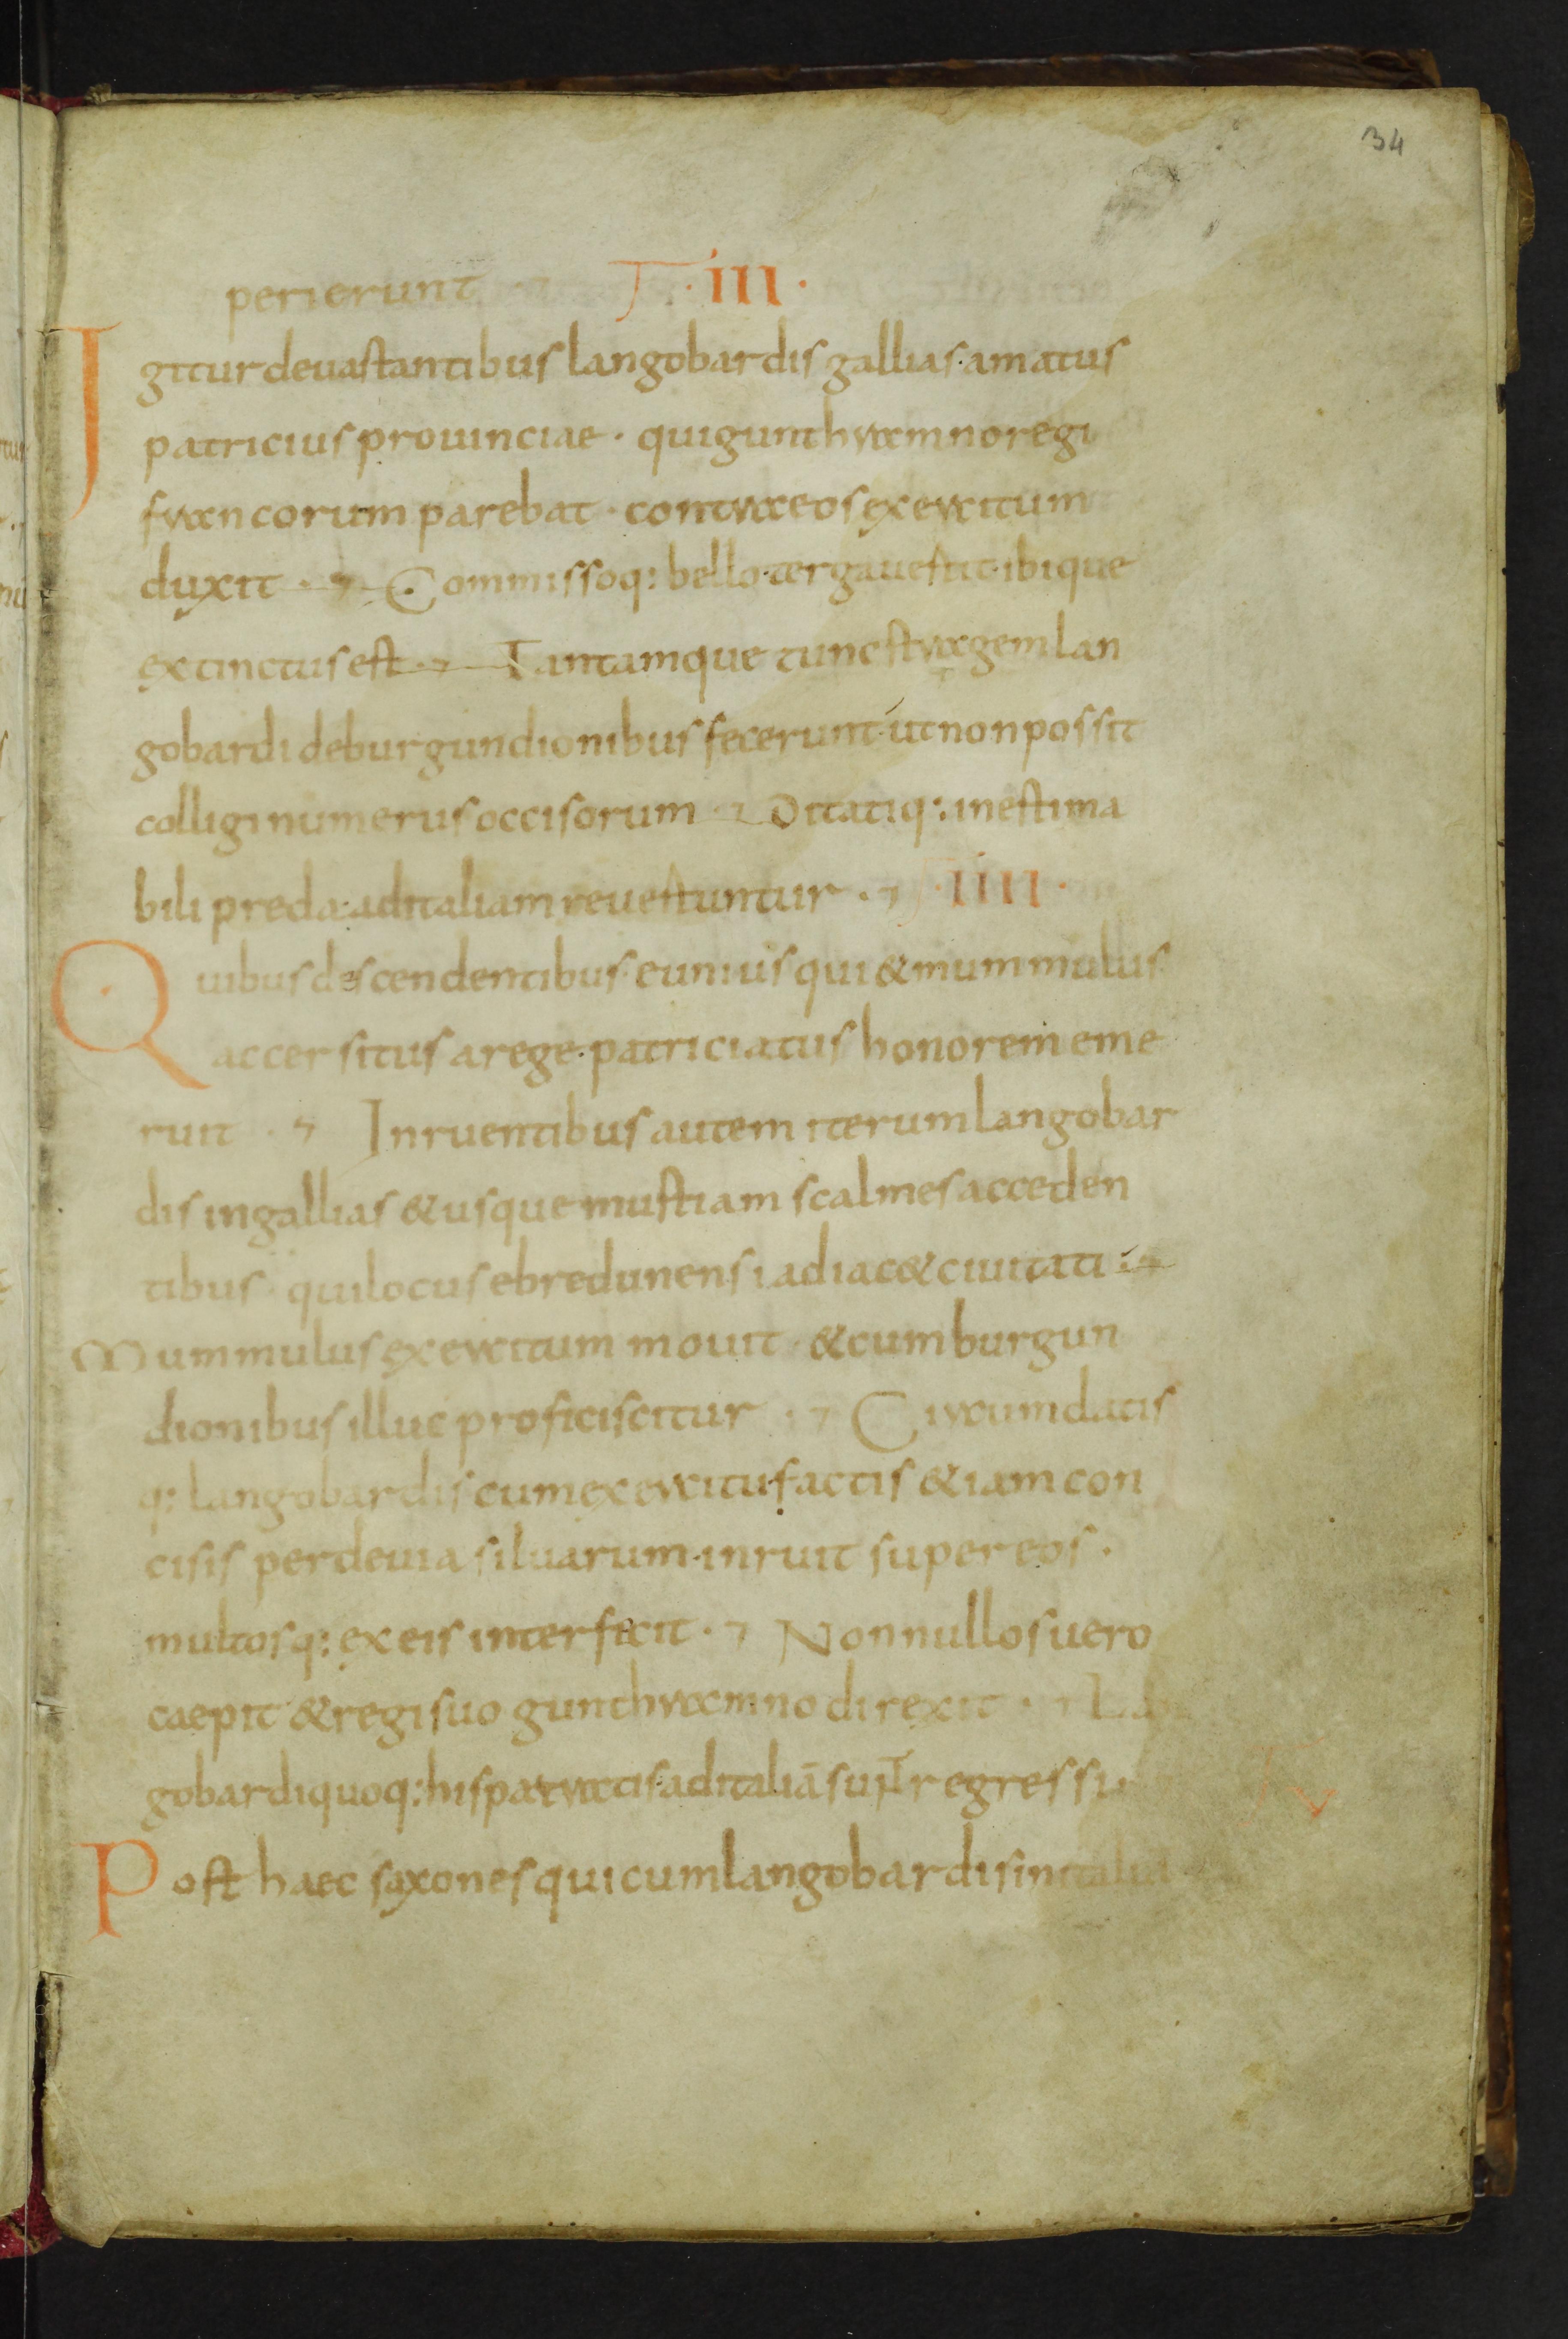 34
perierunt · ⁊ · III ·
Igitur deuastantibus langobardis gallias · amatus
patricius prouinciae · qui gunthramno regi
francorum parebat · contra eos exercitum
duxit · ⁊ Commissoq: bello · terga uertit · ibique
extinctus est · ⁊ Tantamque tunc stragem lan
gobardi de burgundionibus fecerunt · ut non possit
colligi numerus occisorum · ⁊ Ditatiq: inestima
bili preda · ad italiam reuertuntur · ⁊ · IIII ·
Quibus descendentibus · eunius qui & mummulus
accersitus a rege · patriciatus honorem eme
ruit · ⁊ Inruentibus autem iterum langobar
dis in gallias & usque mustiam scalmes acceden
tibus · qui locus ebredunensi adiac& ciuitati · ⁊
Mummulus exercitum mouit · & cum burgun
dionibus illuc proficiscitur · ⁊ Circumdatis
q: langobardis cum exercitu · factis & iam con
cisis per deuia siluarum · inruit super eos ·
multosq: ex eis interfecit · ⁊ Nonnullos uero
caepit & regi suo gunthramno direxit · ⁊
gobardi quoq: his patratis ad italiā sunt regressi
V
Post haec saxones qui cum langobardis in